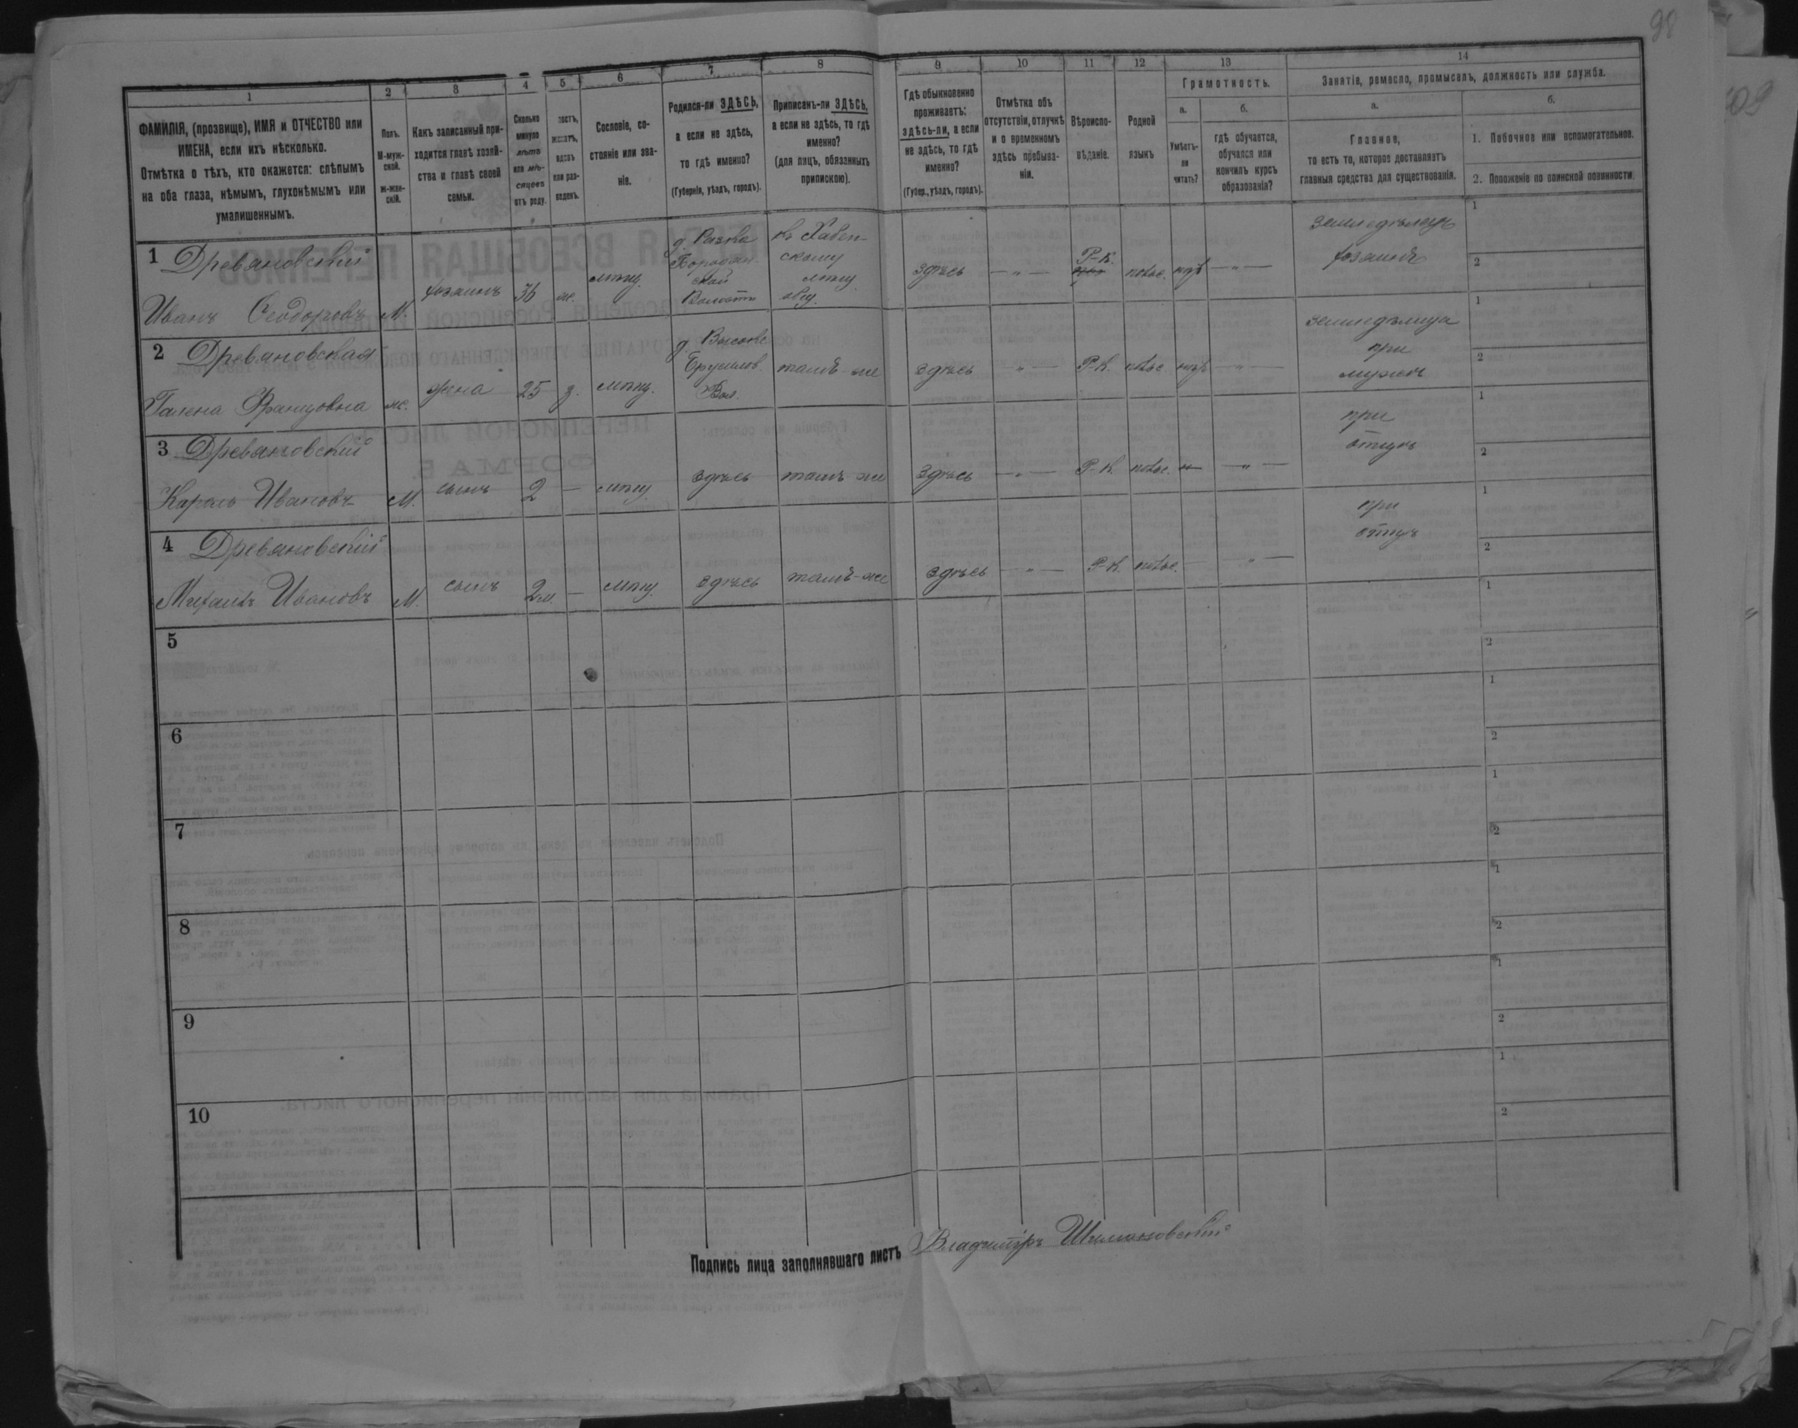 98
1
2
3
4
5
6
7
8
9
10
11
12
13
14
ФАМИЛІЯ, (прозвище), ИМЯ и ОТЧЕСТВО или
ИМЕНА, если ихъ нѣсколько.
Отмѣтка о тѣхъ, кто окажется: слѣпымъ
на оба глаза, нѣмымъ, глухонѣмымъ или
умалишеннымъ.
Полъ.
М-муж-
ской.
ж-жен-
скій.
Какъ записанный при-
ходится главѣ хозяй-
ства и главѣ своей
семьи.
Сколько
минуло
лѣтъ
или мѣ-
сяцевъ
отъ роду.
вдовъ
или раз-
веденъ.
Сословіе, со-
стояніе или зва-
ніе.
Родился-ли ЗДѢСЬ,
а если не здѣсь,
то гдѣ именно?
(Губернія, уѣздъ, городъ).
Приписанъ-ли ЗДѢСЬ,
а если не здѣсь, то гдѣ
именно?
(для лицъ, обязанныхъ
припискою).
Гдѣ обыкновенно
проживаетъ:
здѣсь-ли, а если
не здѣсь, то гдѣ
именно?
(Губер., уѣздъ, городъ).
Отмѣтка объ
отсутствіи, отлучкѣ
и о временномъ
здѣсь пребыва-
ніи.
Вѣроиспо-
вѣданіе.
Родной
языкъ
Грамотность.
а.
Умѣетъ-
ли
читать?
б.
гдѣ обучается,
обучался или
кончилъ курсъ
образованія?
Занятія, ремесло, промыселъ, должность или служба.
а.
Главное,
то есть то, которое доставляетъ
главныя средства для существованія.
б.
1. Побочное или вспомогательное.
2. Положеніе по воинской повинности
1 Древановскій
Иванъ Ѳеодоровъ
М.
хозяинъ
36
ж.
мѣщ.
д. Рахова
Бородян
ской
Волости
къ Хабен-
скому
мѣщ.
общ.
здѣсь
— „ —
Р-К.
польс.
нѣтъ
— „ —
земледѣлецъ
хозяинъ
1
2
2 Древановская
Галена Францовна
ж.
жена
25
з.
мѣщ.
д. Высокое
Брусилов.
Вол.
тамъ-же
здѣсь
— „ —
Р-К.
польс
нѣтъ
— „ —
земледѣлица
при
мужемъ
1
2
3 Древановскій
Кароль Ивановъ
М.
сынъ
2
—
мѣщ.
здѣсь
тамъ же
здѣсь
— „ —
Р-К.
польс.
— „ —
при
отцѣ
1
2
4 Древановскій
Михаилъ Ивановъ
М.
сынъ
2м.
—
мѣщ.
здѣсь
тамъ-же
здѣсь
— „ —
Р-К.
польс.
„ —
при
отцѣ
1
2
5
1
2
6
1
2
7
1
2
8
1
2
9
1
2
10
1
2
Подпись лица заполнявшаго листъ Владиміръ